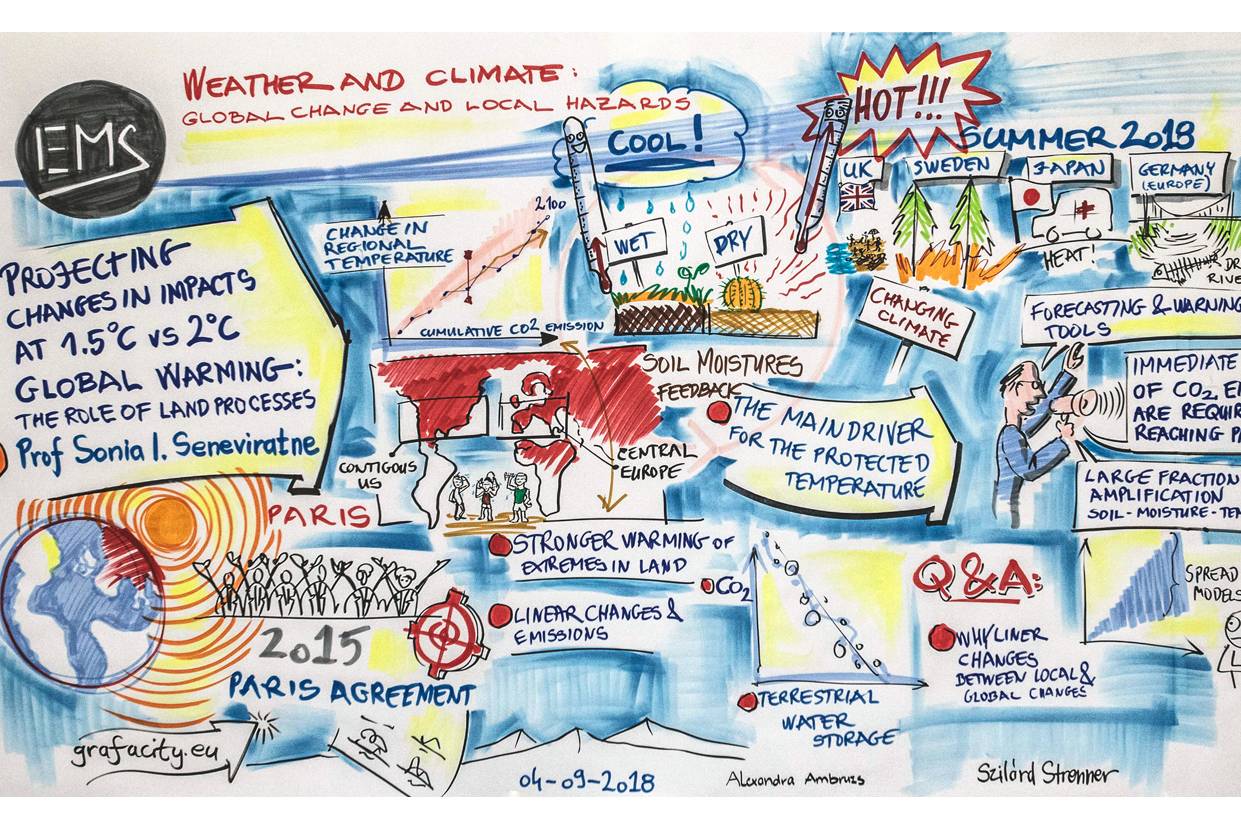 WEATHER AND CLIMATE:
GLOBAL CHANGE AND LOCAL HAZARDS
EMS
PROJECTING
CHANGES IN IMPACTS
AT 1.5°C VS 2°C
GLOBAL WARMING:
THE ROLE OF LAND PROCESSES
Prof Sonia I. Seneviratne
CHANGE IN
REGIONAL
TEMPERATURE
2100
CUMULATIVE CO2 EMISSION
COOL!
HOT!!!
WET
DRY
SUMMER 2018
UK
SWEDEN
JAPAN
GERMANY
(EUROPE)
HEAT!
DR
RIVE
CHANGING
CLIMATE
SOIL MOISTURES
FEEDBACK
CONTIGOUS
US
CENTRAL
EUROPE
THE MAIN DRIVER
FOR THE PROTECTED
TEMPERATURE
FORECASTING & WARNING
TOOLS
IMMEDIATE
OF CO2 E
ARE REQUIR
REACHING P
LARGE FRACTION
AMPLIFICATION
SOIL-MOISTURE-TE
PARIS
2015
PARIS AGREEMENT
STRONGER WARMING OF
EXTREMES IN LAND
LINEAR CHANGES &
EMISSIONS
CO2
TERRESTRIAL
WATER
STORAGE
Q&A:
WHY LINER
CHANGES
BETWEEN LOCAL &
GLOBAL CHANGES
SPREAD
MODELS
grafacity.eu
04-09-2018
Alexandra Ambruss
Szilárd Strenner